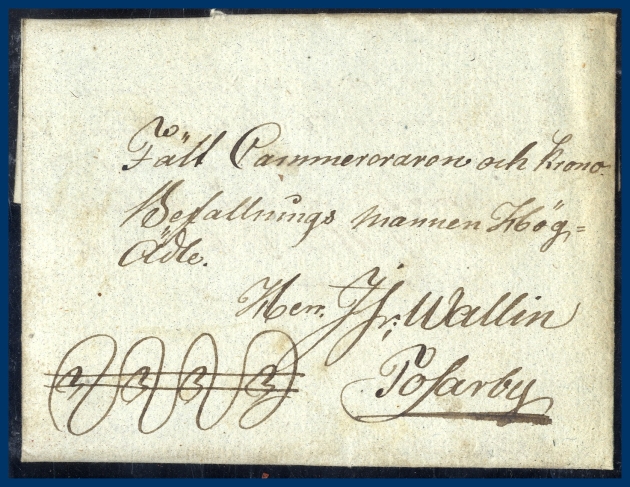 Fält Cammereraren och Krono-
Befallnings mannen Hög=
Ädle.
Herr J Fr: Wallin
Posarby